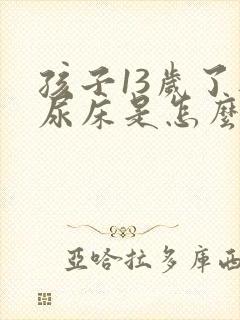 孩子13歲了
尿床是怎麼
亞哈拉多庫西